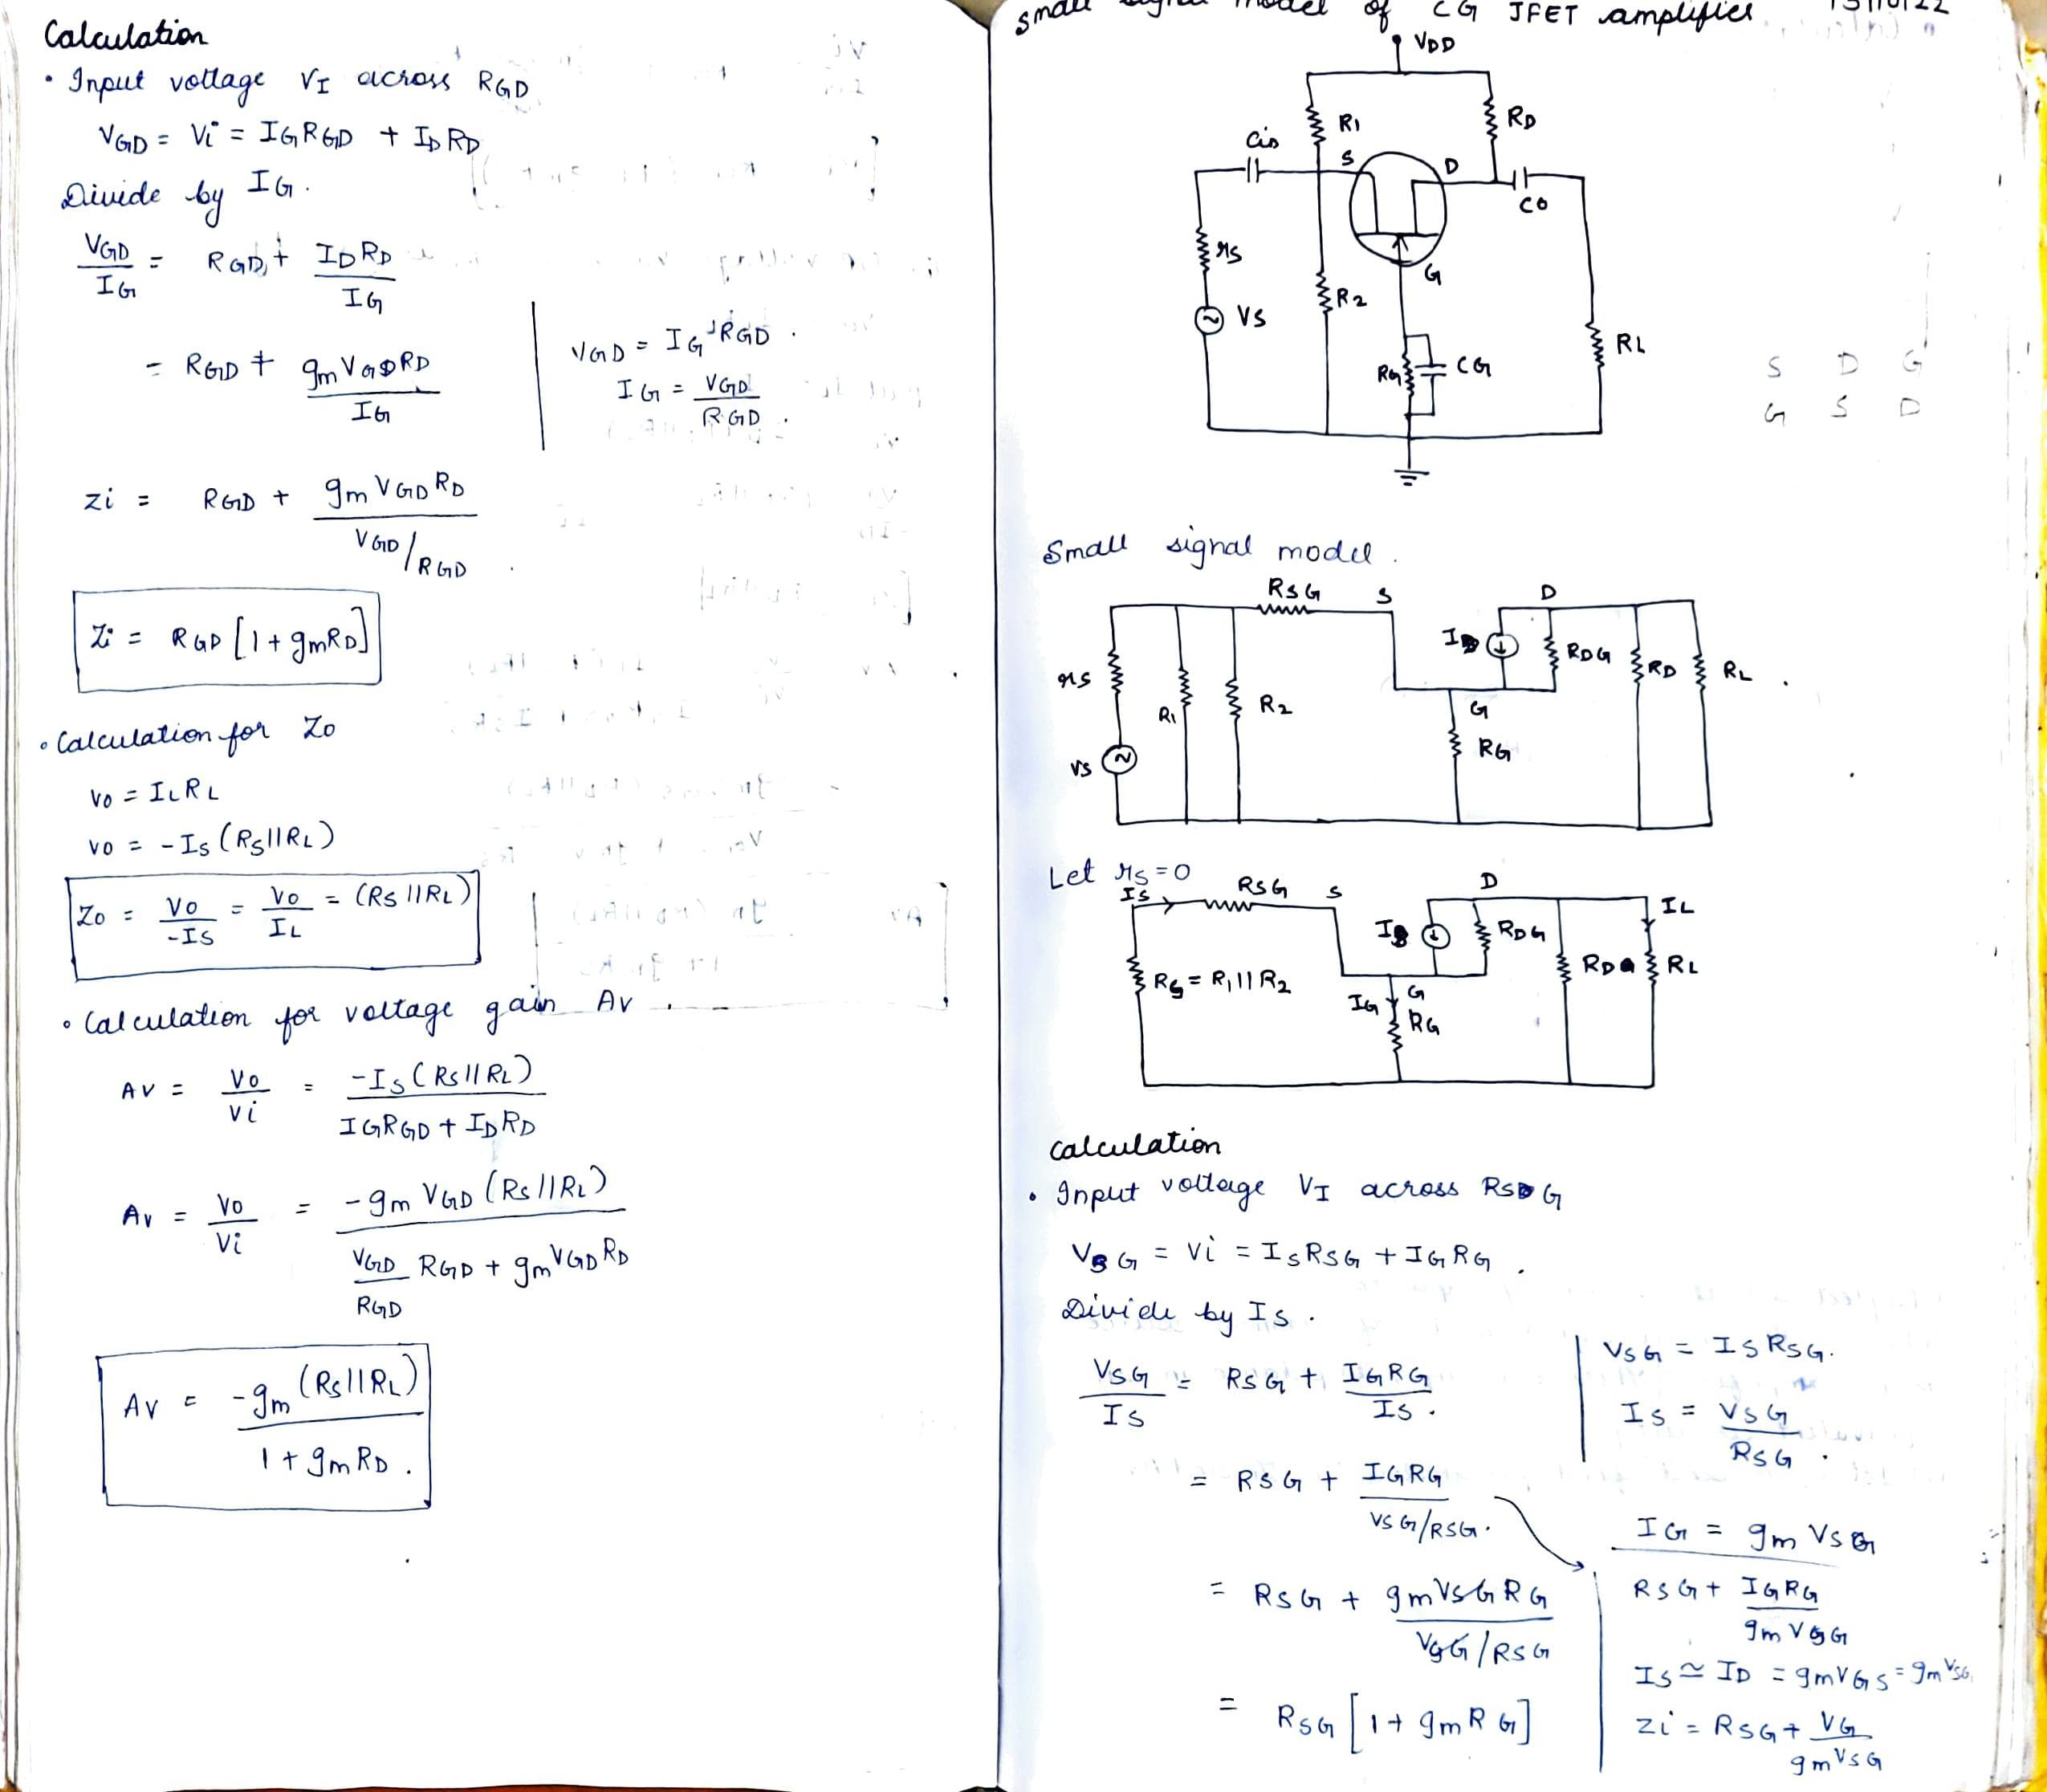 Calculation
• Input voltage VI across RGD
VGD = Vi = IGRGD + IDRD
Divide by IG.
VGD/IG = RGD + IDRD/IG
= RGD + gmVGDRD/IG
VGD = IG RGD.
IG = VGD/RGD.
Zi = RGD + gmVGDRD / VGD/RGD.
Zi = RGD [1 + gmRD]
• Calculation for Zo
Vo = ILRL
Vo = -Is (Rs||RL)
Zo = Vo/-Is = Vo/IL = (Rs||RL)
• Calculation for voltage gain Av
Av = Vo/Vi = -Is (Rs||RL) / IGRGD + IDRD
Av = Vo/Vi = -gm VGD (Rs||RL) / VGD/RGD RGD + gmVGDRD
Av = -gm (Rs||RL) / 1 + gmRD.
Small signal model of CG JFET amplifier
VDD
R1
RD
Cin
S
D
Co
rs
G
R2
Vs
RL
RG
CG
S D G
G S D
Small signal model.
RSG
S
D
ID
RDG
RD
RL
rs
R1
R2
G
RG
Vs
Let rs = 0
Is
RSG
S
D
IL
RDG
RD
RL
Rs = R1||R2
IG
G
RG
Calculation
• Input voltage VI across RSG
VSG = Vi = IsRSG + IGRG.
Divide by Is.
VSG/Is = RSG + IGRG/Is.
= RSG + IGRG / VSG/RSG.
= RSG + gmVSGRG / VSG/RSG
= RSG [1 + gmRG]
VSG = IsRSG.
Is = VSG/RSG.
IG = gm VSG
RSG + IGRG / gmVSG
Is ≃ ID = gmVGS = gmVSG
Zi = RSG + VG / gmVSG